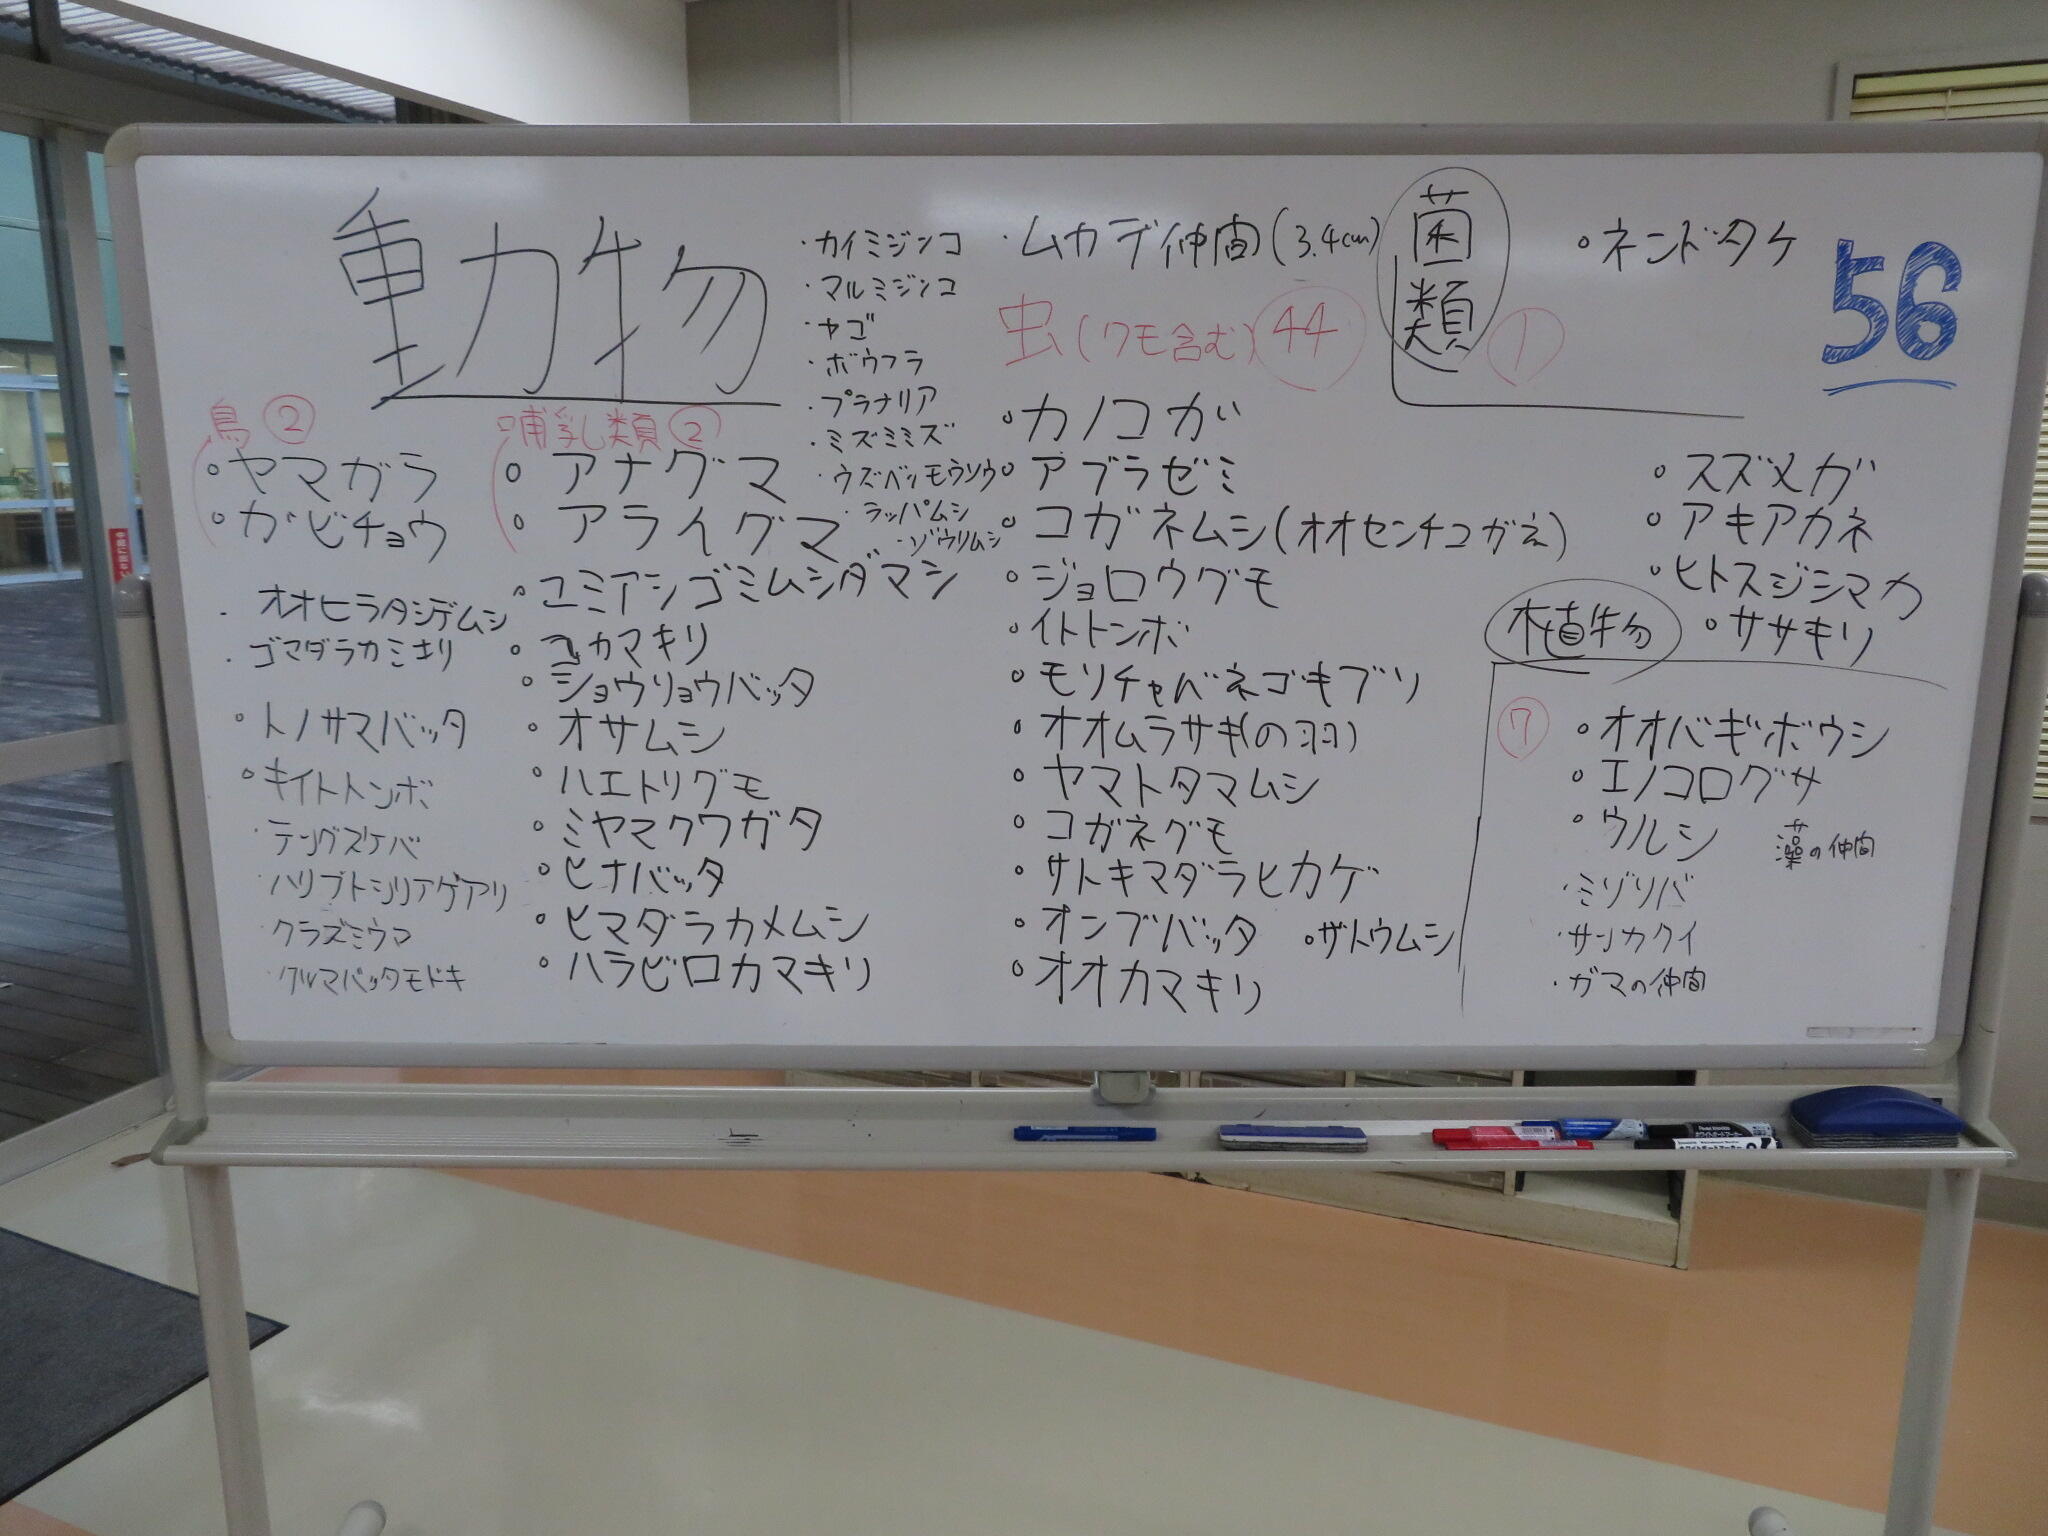 動物
鳥 ②
ヤマガラ
ガビチョウ
オオヒラタシデムシ
ゴマダラカミキリ
トノサマバッタ
キイトトンボ
テングスケバ
ハリブトシリアゲアリ
クラズミウマ
クルマバッタモドキ
哺乳類 ②
アナグマ
アライグマ
ユミアシゴミムシダマシ
コカマキリ
ショウリョウバッタ
オサムシ
ハエトリグモ
ミヤマクワガタ
ヒナバッタ
ヒマダラカメムシ
ハラビロカマキリ
・カイミジンコ
・マルミジンコ
・ヤゴ
・ボウフラ
・プラナリア
・ミズミミズ
・ウズベンモウソウ
・ラッパムシ
・ゾウリムシ
・ムカデ仲間(3.4cm)
虫(クモ含む) 44
カノコガ
アブラゼミ
コガネムシ(オオセンチコガネ)
ジョロウグモ
イトトンボ
モリチャバネゴキブリ
オオムラサキ(の羽)
ヤマトタマムシ
コガネグモ
サトキマダラヒカゲ
オンブバッタ
ザトウムシ
オオカマキリ
スズメガ
アキアカネ
ヒトスジシマカ
ササキリ
菌類
①
ネンドタケ
56
植物
⑦
オオバギボウシ
エノコログサ
ウルシ
藻の仲間
ミゾソバ
・サンカクイ
・ガマの仲間